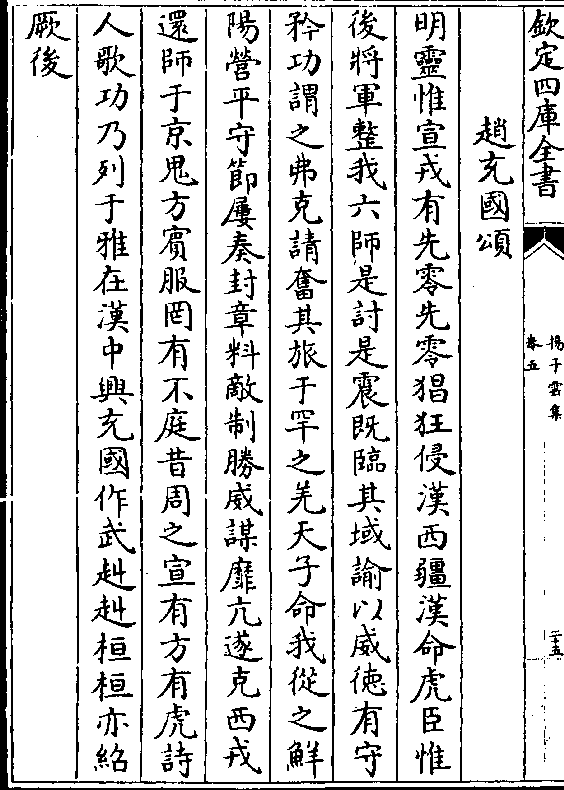 欽定四庫全書
揚子雲集
卷五
二十五
趙充國頌
明靈惟宣戎有先零先零猖狂侵漢西疆漢命虎臣惟
後將軍整我六師是討是震既臨其域諭以威德有守
矜功謂之弗克請奮其旅于罕之羌天子命我從之鮮
陽營平守節屢奏封章料敵制勝威謀靡亢遂克西戎
還師于京鬼方賓服罔有不庭昔周之宣有方有虎詩
人歌功乃列于雅在漢中興充國作武赳赳桓桓亦紹
厥後